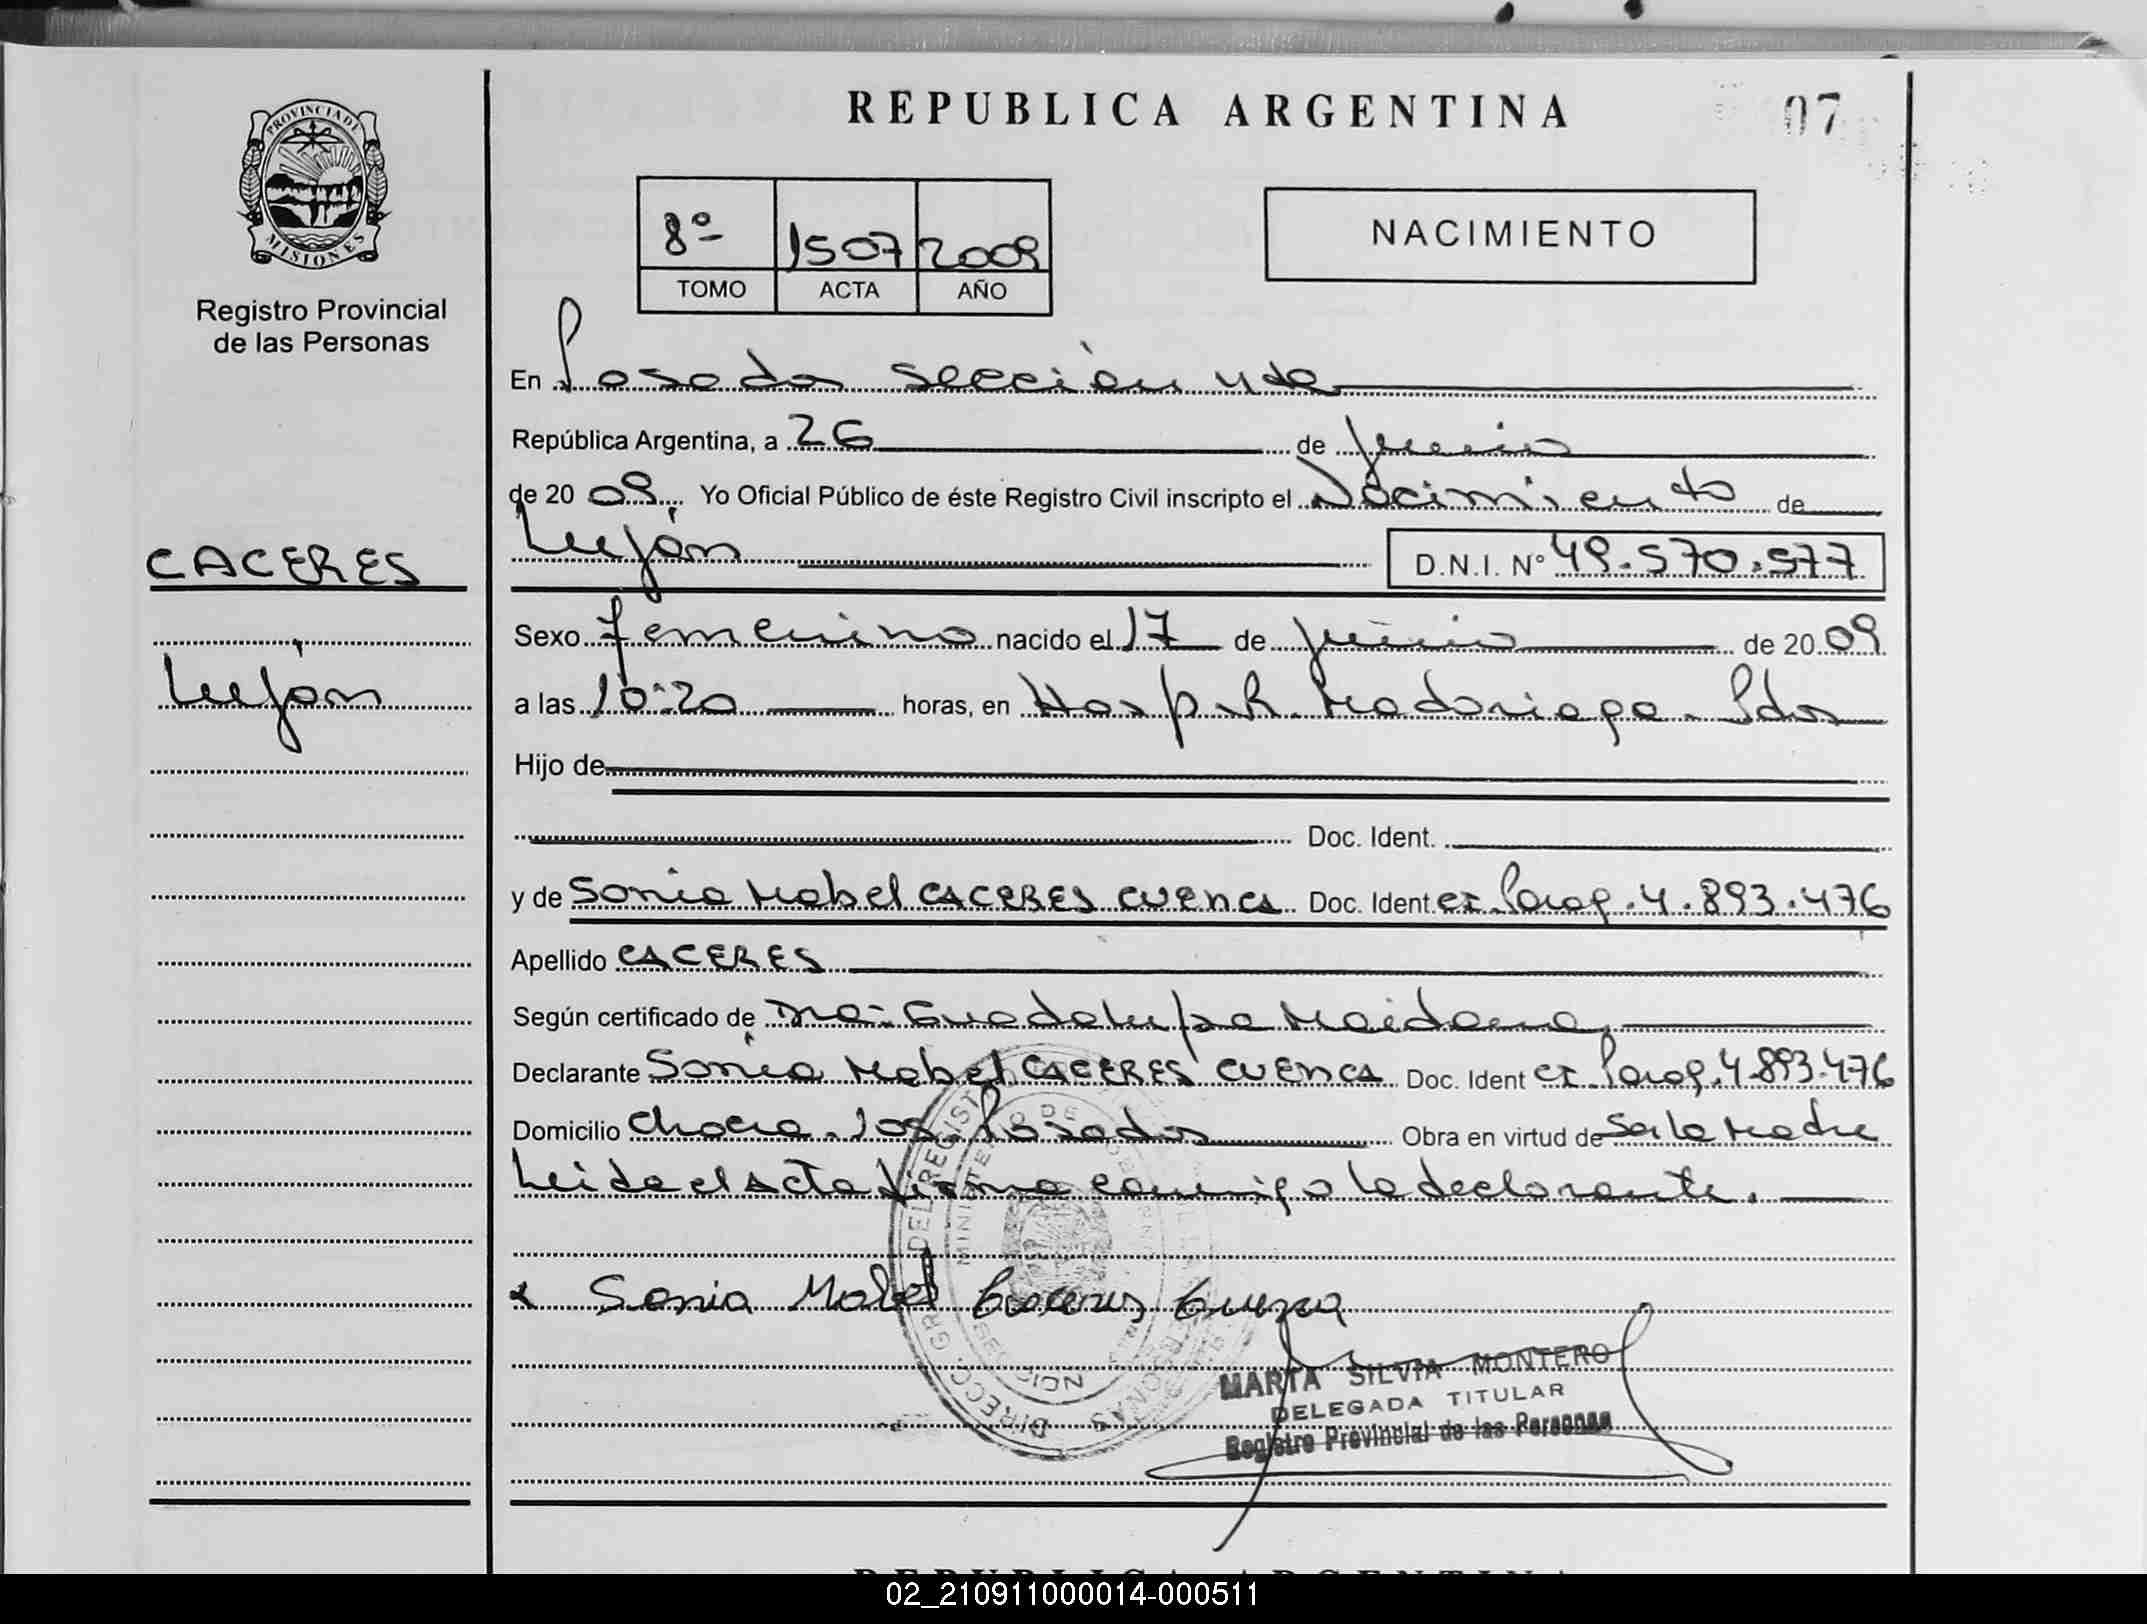 REPUBLICA ARGENTINA
07
PROVINCIA DE
MISIONES
Registro Provincial
de las Personas
8º 1507 2009
TOMO ACTA AÑO
NACIMIENTO
En Posadas sección 4ta
República Argentina, a 26 de junio
de 2009 Yo Oficial Público de éste Registro Civil inscripto el Nacimiento de
Luján D.N.I. Nº 49.570.577
CACERES
Luján
Sexo femenino nacido el 17 de junio de 2009
a las 10:20 horas, en Hosp. R. Madariaga. Pdas
Hijo de
Doc. Ident.
y de Sonia Mabel CACERES CUENCA Doc. Ident CI Parag. 4.893.476
Apellido CACERES
Según certificado de Dra: Guadalupe Maidana
Declarante Sonia Mabel CACERES CUENCA Doc. Ident CI Parag. 4.893.476
Domicilio Chacra. Posadas Obra en virtud de Ser la Madre
Leida el Acta firma conmigo la declarante.
x Sonia Mabel Caceres Cuenca
MARTA SILVIA MONTERO
DELEGADA TITULAR
Registro Provincial de las Personas
REPUBLICA ARGENTINA
02_210911000014-000511